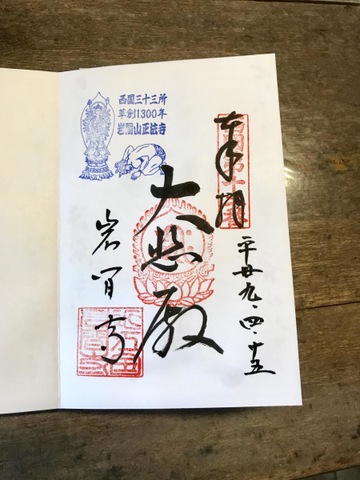 西国三十三所
草創1300年
岩間山正法寺
奉拝
平廿九・四・十五
大悲殿
岩间寺